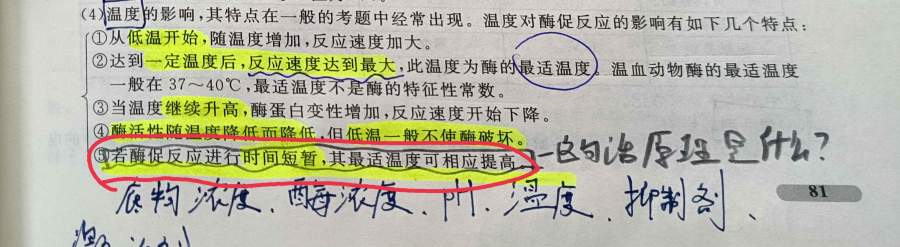 (4)温度的影响,其特点在一般的考题中经常出现。温度对酶促反应的影响有如下几个特点:
①从低温开始,随温度增加,反应速度加大。
②达到一定温度后,反应速度达到最大,此温度为酶的最适温度。温血动物酶的最适温度
一般在37～40℃,最适温度不是酶的特征性常数。
③当温度继续升高,酶蛋白变性增加,反应速度开始下降。
④酶活性随温度降低而降低,但低温一般不使酶破坏。
⑤若酶促反应进行时间短暂,其最适温度可相应提高。
原理是什么?
81
底物浓度、酶浓度、pH、温度、抑制剂、